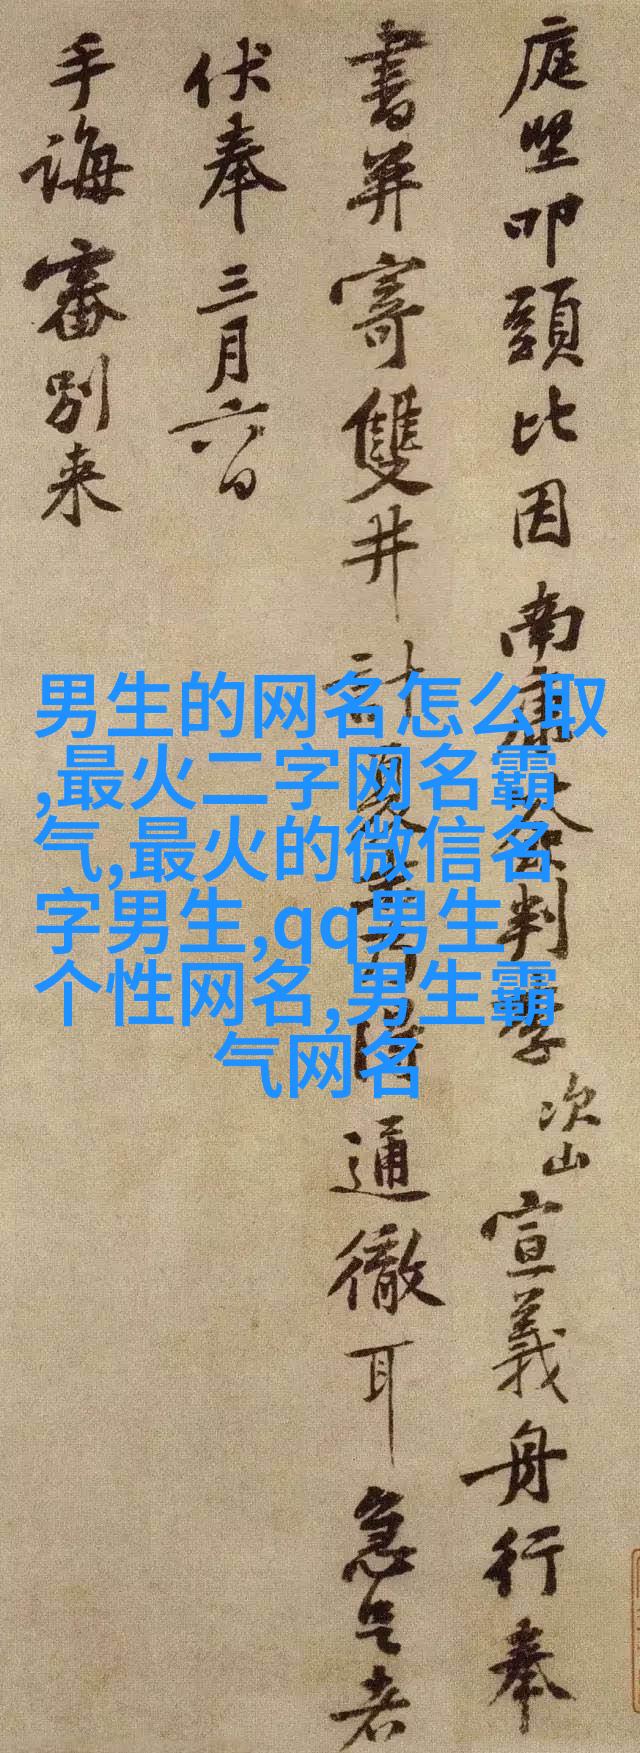 庭堅叩頭比因南康判李次山宣義舟行奉
書并寄雙井計夏得通徹耳急足者
伏奉三月六日
手誨審別来
男生的网名怎么取
,最火二字网名霸
气,最火的微信名
字男生,qq男生
个性网名,男生霸
气网名